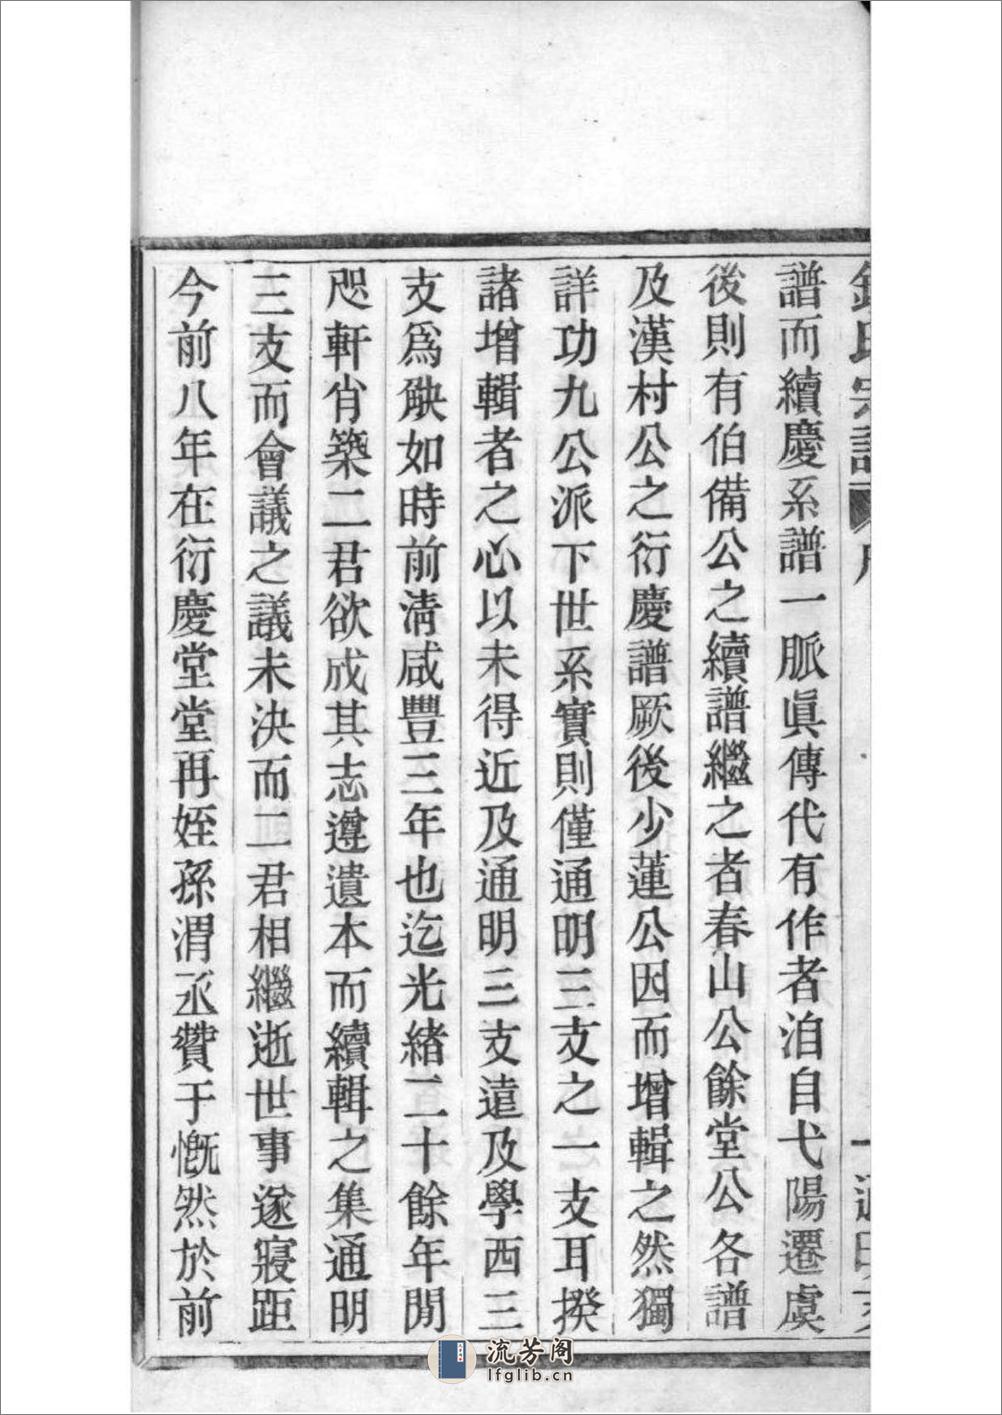 譜而續慶系譜一脈眞傳代有作者洎自弋陽遷虞
後則有伯備公之續譜繼之者春山公餘堂公各譜
及漢村公之衍慶譜厥後少蓮公因而增輯之然獨
詳功九公派下世系實則僅通明三支之一支耳揆
諸增輯者之心以未得近及通明三支遠及學西三
支爲缺如時前淸咸豐三年也迄光緒二十餘年間
咫軒肯築二君欲成其志遵遺本而續輯之集通明
三支而會議之議未決而二君相繼逝世事遂寢距
今前八年在衍慶堂堂再姪孫渭丞贊于慨然於前
流芳阁
lfglib.cn